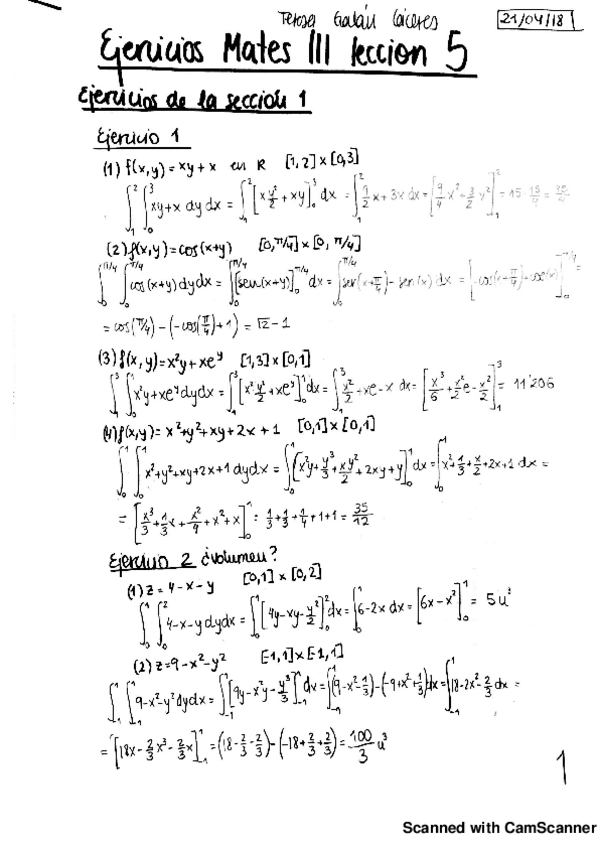 Teresa Galán Cáceres
21/04/18
Ejercicios Mates III leccion 5
Ejercicios de la sección 1
Ejercicio 1
(1) f(x,y) = xy + x en R [1,2] x [0,3]
∫₁² ∫₀³ xy+x dy dx = ∫₁² [x y²/2 + xy]₀³ dx = ∫₁² 9/2 x + 3x dx = [9/4 x² + 3/2 x²]₁² = 15
(2) f(x,y) = cos(x+y) [0, π/4] x [0, π/4]
∫₀^π/4 ∫₀^π/4 cos(x+y) dy dx = ∫₀^π/4 [sen(x+y)]₀^π/4 dx = ∫₀^π/4 sen(x+π/4) - sen(x) dx = [-cos(x+π/4)+cos(x)]₀^π/4 =
= cos(π/4) - (-cos(π/4)+1) = √2 - 1
(3) f(x,y) = x²y + xe^y [1,3] x [0,1]
∫₁³ ∫₀¹ x²y + xe^y dy dx = ∫₁³ [x² y²/2 + xe^y]₀¹ dx = ∫₁³ x²/2 + xe - x dx = [x³/6 + x²/2 e - x²/2]₁³ = 11'206
(4) f(x,y) = x² + y² + xy + 2x + 1 [0,1] x [0,1]
∫₀¹ ∫₀¹ x² + y² + xy + 2x + 1 dy dx = ∫₀¹ [x²y + y³/3 + xy²/2 + 2xy + y]₀¹ dx = ∫₀¹ x² + 1/3 + x/2 + 2x + 1 dx =
= [x³/3 + 1/3 x + x²/4 + x² + x]₀¹ = 1/3 + 1/3 + 1/4 + 1 + 1 = 35/12
Ejercicio 2 ¿volumen?
(1) z = 4 - x - y [0,1] x [0,2]
∫₀¹ ∫₀² 4 - x - y dy dx = ∫₀¹ [4y - xy - y²/2]₀² dx = ∫₀¹ 6 - 2x dx = [6x - x²]₀¹ = 5 u³
(2) z = 9 - x² - y² [-1,1] x [-1,1]
∫₋₁¹ ∫₋₁¹ 9 - x² - y² dy dx = ∫₋₁¹ [9y - x²y - y³/3]₋₁¹ dx = ∫₋₁¹ (9 - x² - 1/3) - (-9 + x² + 1/3) dx = ∫₋₁¹ 18 - 2x² - 2/3 dx =
= [18x - 2/3 x³ - 2/3 x]₋₁¹ = (18 - 2/3 - 2/3) - (-18 + 2/3 + 2/3) = 100/3 u³
1
Scanned with CamScanner